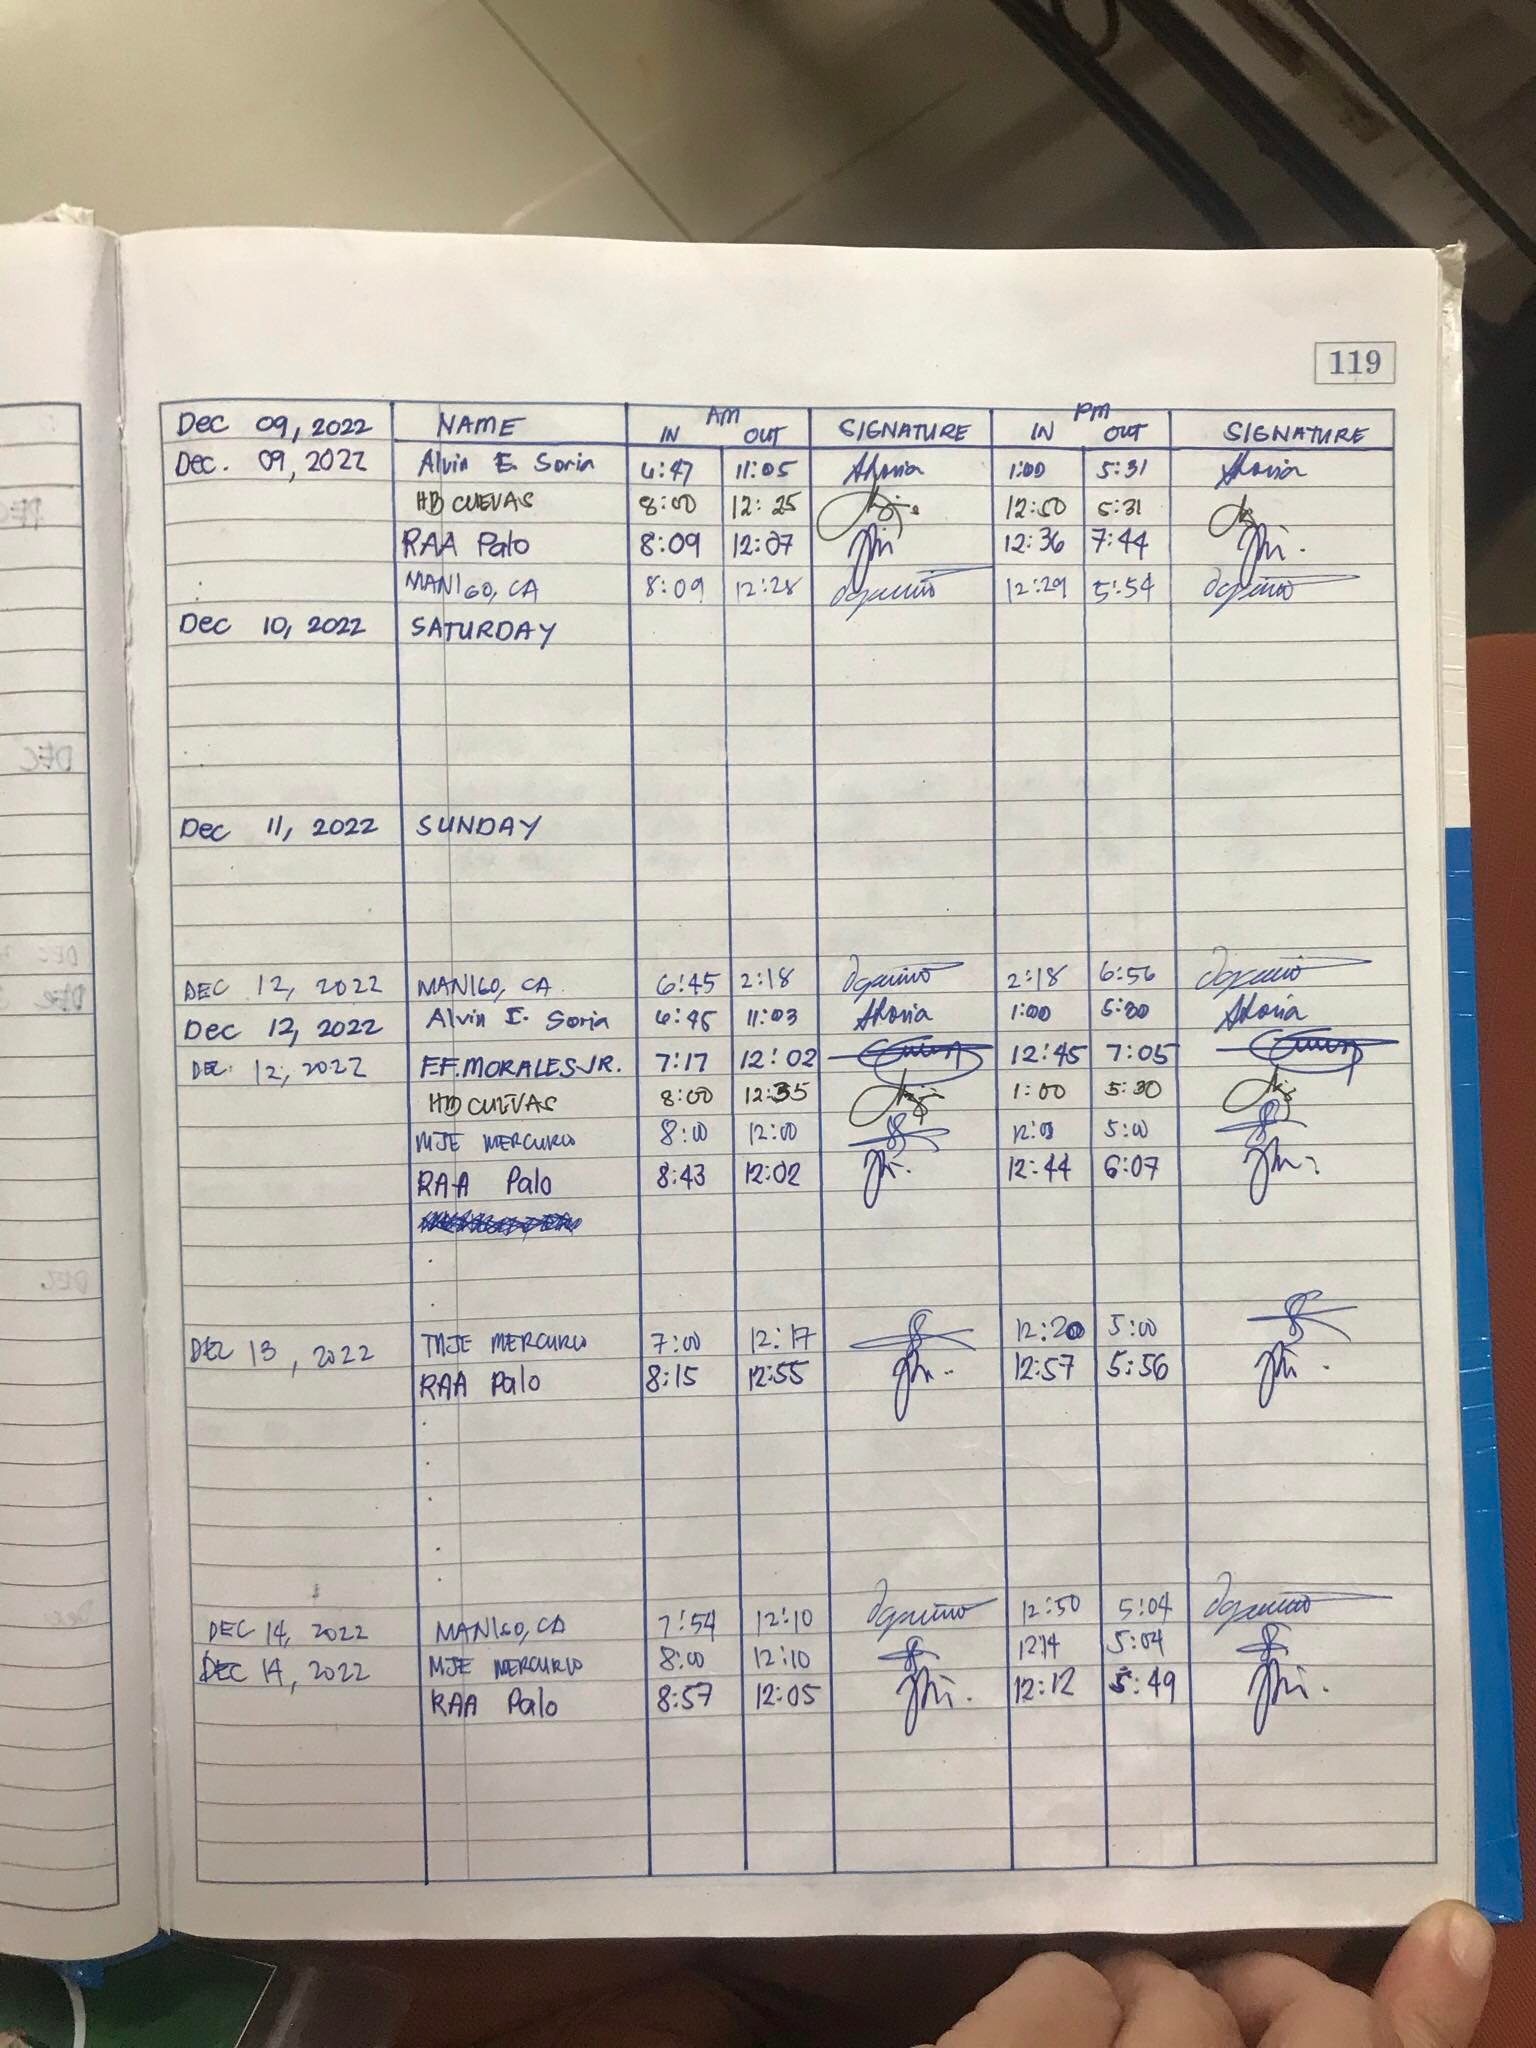 119
Dec 09, 2022 NAME AM IN OUT SIGNATURE PM IN OUT SIGNATURE
Dec. 09, 2022 Alvin E. Soria 6:47 11:05 ASoria 1:00 5:31 ASoria
HB CUEVAS 8:00 12:25 12:50 5:31
RAA Palo 8:09 12:07 12:36 7:44
MANIGO, CA 8:09 12:28 12:29 5:54
Dec 10, 2022 SATURDAY
Dec 11, 2022 SUNDAY
DEC 12, 2022 MANIGO, CA 6:45 2:18 2:18 6:56
Dec 12, 2022 Alvin E. Soria 6:45 11:03 ASoria 1:00 5:00 ASoria
DEC. 12, 2022 F.F. MORALES JR. 7:17 12:02 12:45 7:05
HB CUEVAS 8:00 12:35 1:00 5:30
MJE MERCURIO 8:00 12:00 5:00
RAA Palo 8:43 12:02 12:44 6:07
DEC 13, 2022 MJE MERCURIO 7:00 12:17 12:20 5:00
RAA Palo 8:15 12:55 12:57 5:56
DEC 14, 2022 MANIGO, CA 7:54 12:10 12:50 5:04
DEC 14, 2022 MJE MERCURIO 8:00 12:10 12:14 5:04
RAA Palo 8:57 12:05 12:12 5:49